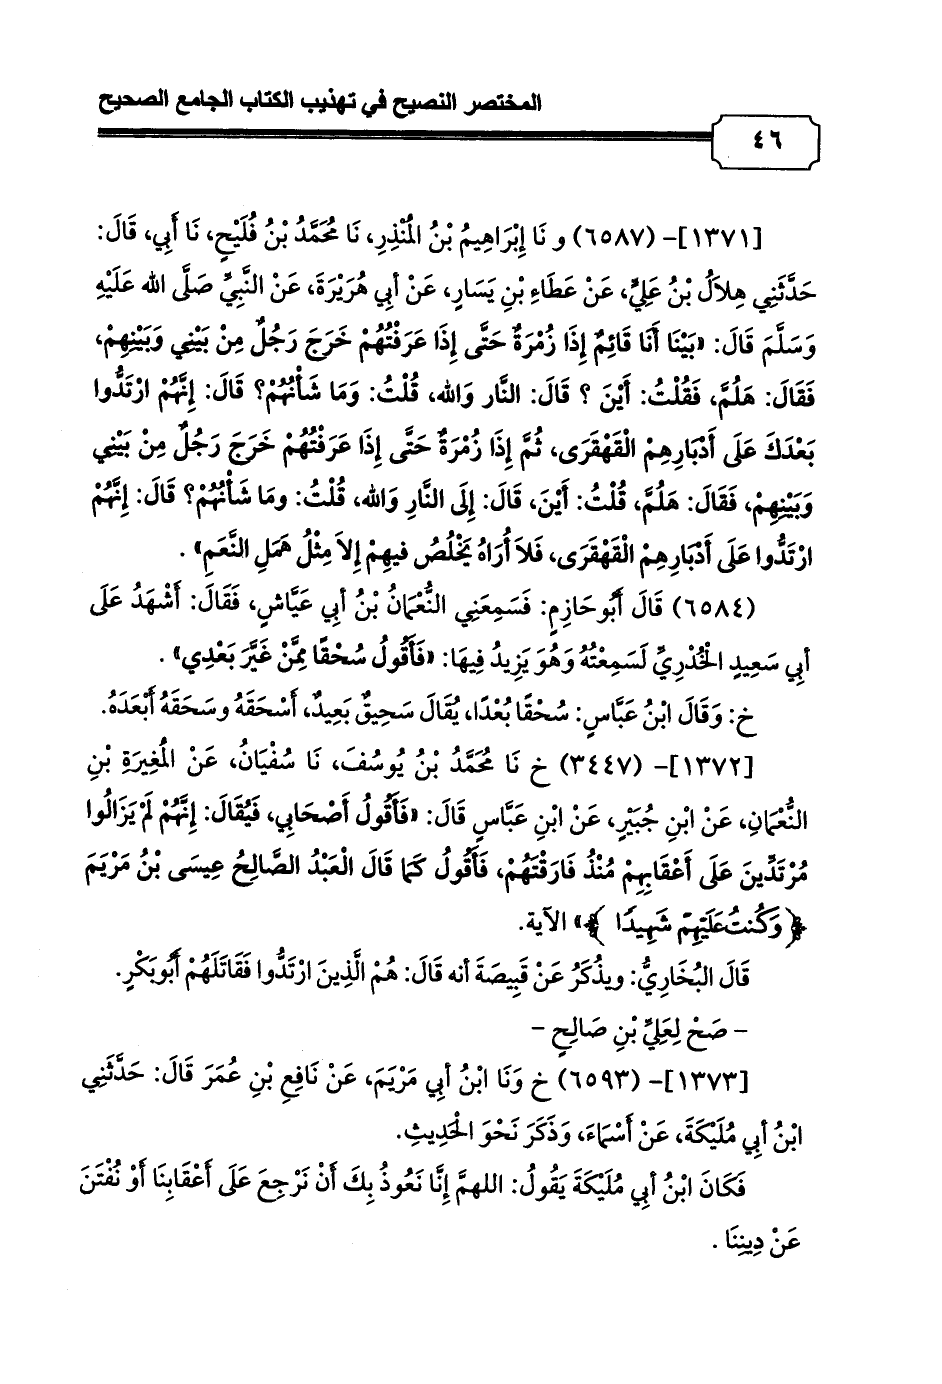 المختصر النصيح في تهذيب الكتاب الجامع الصحيح
٤٦
[١٣٧١]- (٦٥٨٧) و نَا إِبْرَاهِيمُ بْنُ المُنْذِرِ، نَا مُحَمَّدُ بْنُ فُلَيْحٍ، نَا أَبِي، قَالَ:
حَدَّثَنِي هِلاَلُ بْنُ عَلِيٍّ، عَنْ عَطَاءِ بْنِ يَسَارٍ، عَنْ أبِي هُرَيْرَةَ، عَنْ النَّبِيِّ صَلَّى الله عَلَيْهِ
وَسَلَّمَ قَالَ: «بَيْنَا أَنَا قَائِمٌ إِذَا زُمْرَةٌ حَتَّى إِذَا عَرَفْتُهُمْ خَرَجَ رَجُلٌ مِنْ بَيْنِي وَبَيْنِهِمْ،
فَقَالَ: هَلُمَّ، فَقُلْتُ: أَيْنَ ؟ قَالَ: النَّار وَالله، قُلْتُ: وَمَا شَأْنُهُمْ؟ قَالَ: إِنَّهُمْ ارْتَدُّوا
بَعْدَكَ عَلَى أَدْبَارِهِمْ الْقَهْقَرَى، ثُمَّ إِذَا زُمْرَةٌ حَتَّى إِذَا عَرَفْتُهُمْ خَرَجَ رَجُلٌ مِنْ بَيْنِي
وَبَيْنِهِمْ، فَقَالَ: هَلُمَّ، قُلْتُ: أَيْنَ، قَالَ: إِلَى النَّارِ وَالله، قُلْتُ: ومَا شَأْنُهُمْ؟ قَالَ: إِنَّهُمْ
ارْتَدُّوا عَلَى أَدْبَارِهِمْ الْقَهْقَرَى، فَلاَ أُرَاهُ يَخْلُصُ فيهِمْ إِلاَ مِثْلُ هَمَلِ النَّعَمِ» .
(٦٥٨٤) قَالَ أَبُو حَازِمٍ: فَسَمِعَنِي النُّعْمَانُ بْنُ أبِي عَيَّاشٍ، فَقَالَ: أَشْهَدُ عَلَى
أبِي سَعِيدٍ الْخُدْرِيِّ لَسَمِعْتُهُ وَهُوَ يَزِيدُ فِيهَا: «فَأَقُولُ سُحْقًا مِمَّنْ غَيَّرَ بَعْدِي» .
خ: وَقَالَ ابْنُ عَبَّاسٍ: سُحْقًا بُعْدًا، يُقَالَ سَحِيقٌ بَعِيدٌ، أَسْحَقَهُ وسَحَقَهُ أَبْعَدَهُ.
[١٣٧٢]- (٣٤٤٧) خ نَا مُحَمَّدُ بْنُ يُوسُفَ، نَا سُفْيَانُ، عَنْ المُغِيرَةِ بْنِ
النُّعْمَانِ، عَنْ ابْنِ جُبَيْرٍ، عَنْ ابْنِ عَبَّاسٍ قَالَ: «فَأَقُولُ أَصْحَابِي، فَيُقَالَ: إِنَّهُمْ لَمْ يَزَالُوا
مُرْتَدِّينَ عَلَى أَعْقَابِهِمْ مُنْذُ فَارَقْتَهُمْ، فَأَقُولُ كَمَا قَالَ الْعَبْدُ الصَّالِحُ عِيسَى بْنُ مَرْيَمَ
﴿ وَكُنتُ عَلَيْهِمْ شَهِيدًا ﴾» الآية.
قَالَ البُخَارِيُّ: ويذْكَرُ عَنْ قَبِيصَةَ أنه قَالَ: هُمْ الَّذِينَ ارْتَدُّوا فَقَاتَلَهُمْ أَبُوبَكْرٍ.
– صَحْ لِعَلِيِّ بْنِ صَالِحٍ –
[١٣٧٣]- (٦٥٩٣) خ وَنَا ابْنُ أبِي مَرْيَمَ، عَنْ نَافِعِ بْنِ عُمَرَ قَالَ: حَدَّثَنِي
ابْنُ أبِي مُلَيْكَةَ، عَنْ أَسْمَاءَ، وَذَكَرَ نَحْوَ الْحَدِيثِ.
فَكَانَ ابْنُ أبِي مُلَيْكَةَ يَقُولُ: اللهمَّ إِنَّا نَعُوذُ بِكَ أَنْ نَرْجِعَ عَلَى أَعْقَابِنَا أَوْ نُفْتَنَ
عَنْ دِينِنَا .